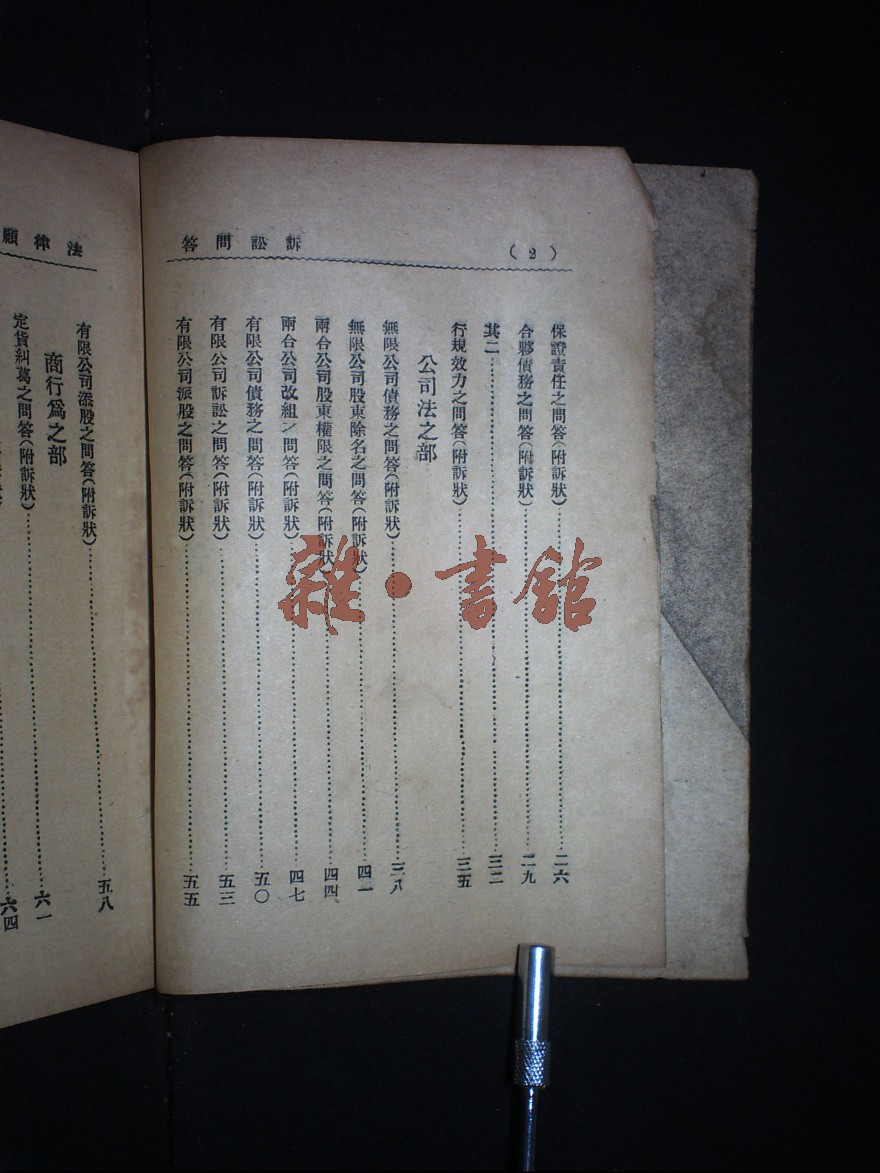 (2)
訴訟問答
保證責任之問答(附訴狀)二六
合夥債務之問答(附訴狀)二九
其二三二
行規效力之問答(附訴狀)三五
公司法之部
無限公司債務之問答(附訴狀)三八
無限公司股東除名之問答(附訴狀)四一
兩合公司股東權限之問答(附訴狀)四四
兩合公司改組 問答(附訴狀)四七
有限公司債務之問答(附訴狀)五〇
有限公司訴訟之問答(附訴狀)五三
有限公司派股之問答(附訴狀)五五
法律顧
有限公司添股之問答(附訴狀)五八
商行爲之部
定貨糾葛之問答(附訴狀)六一
六四
雜·書館